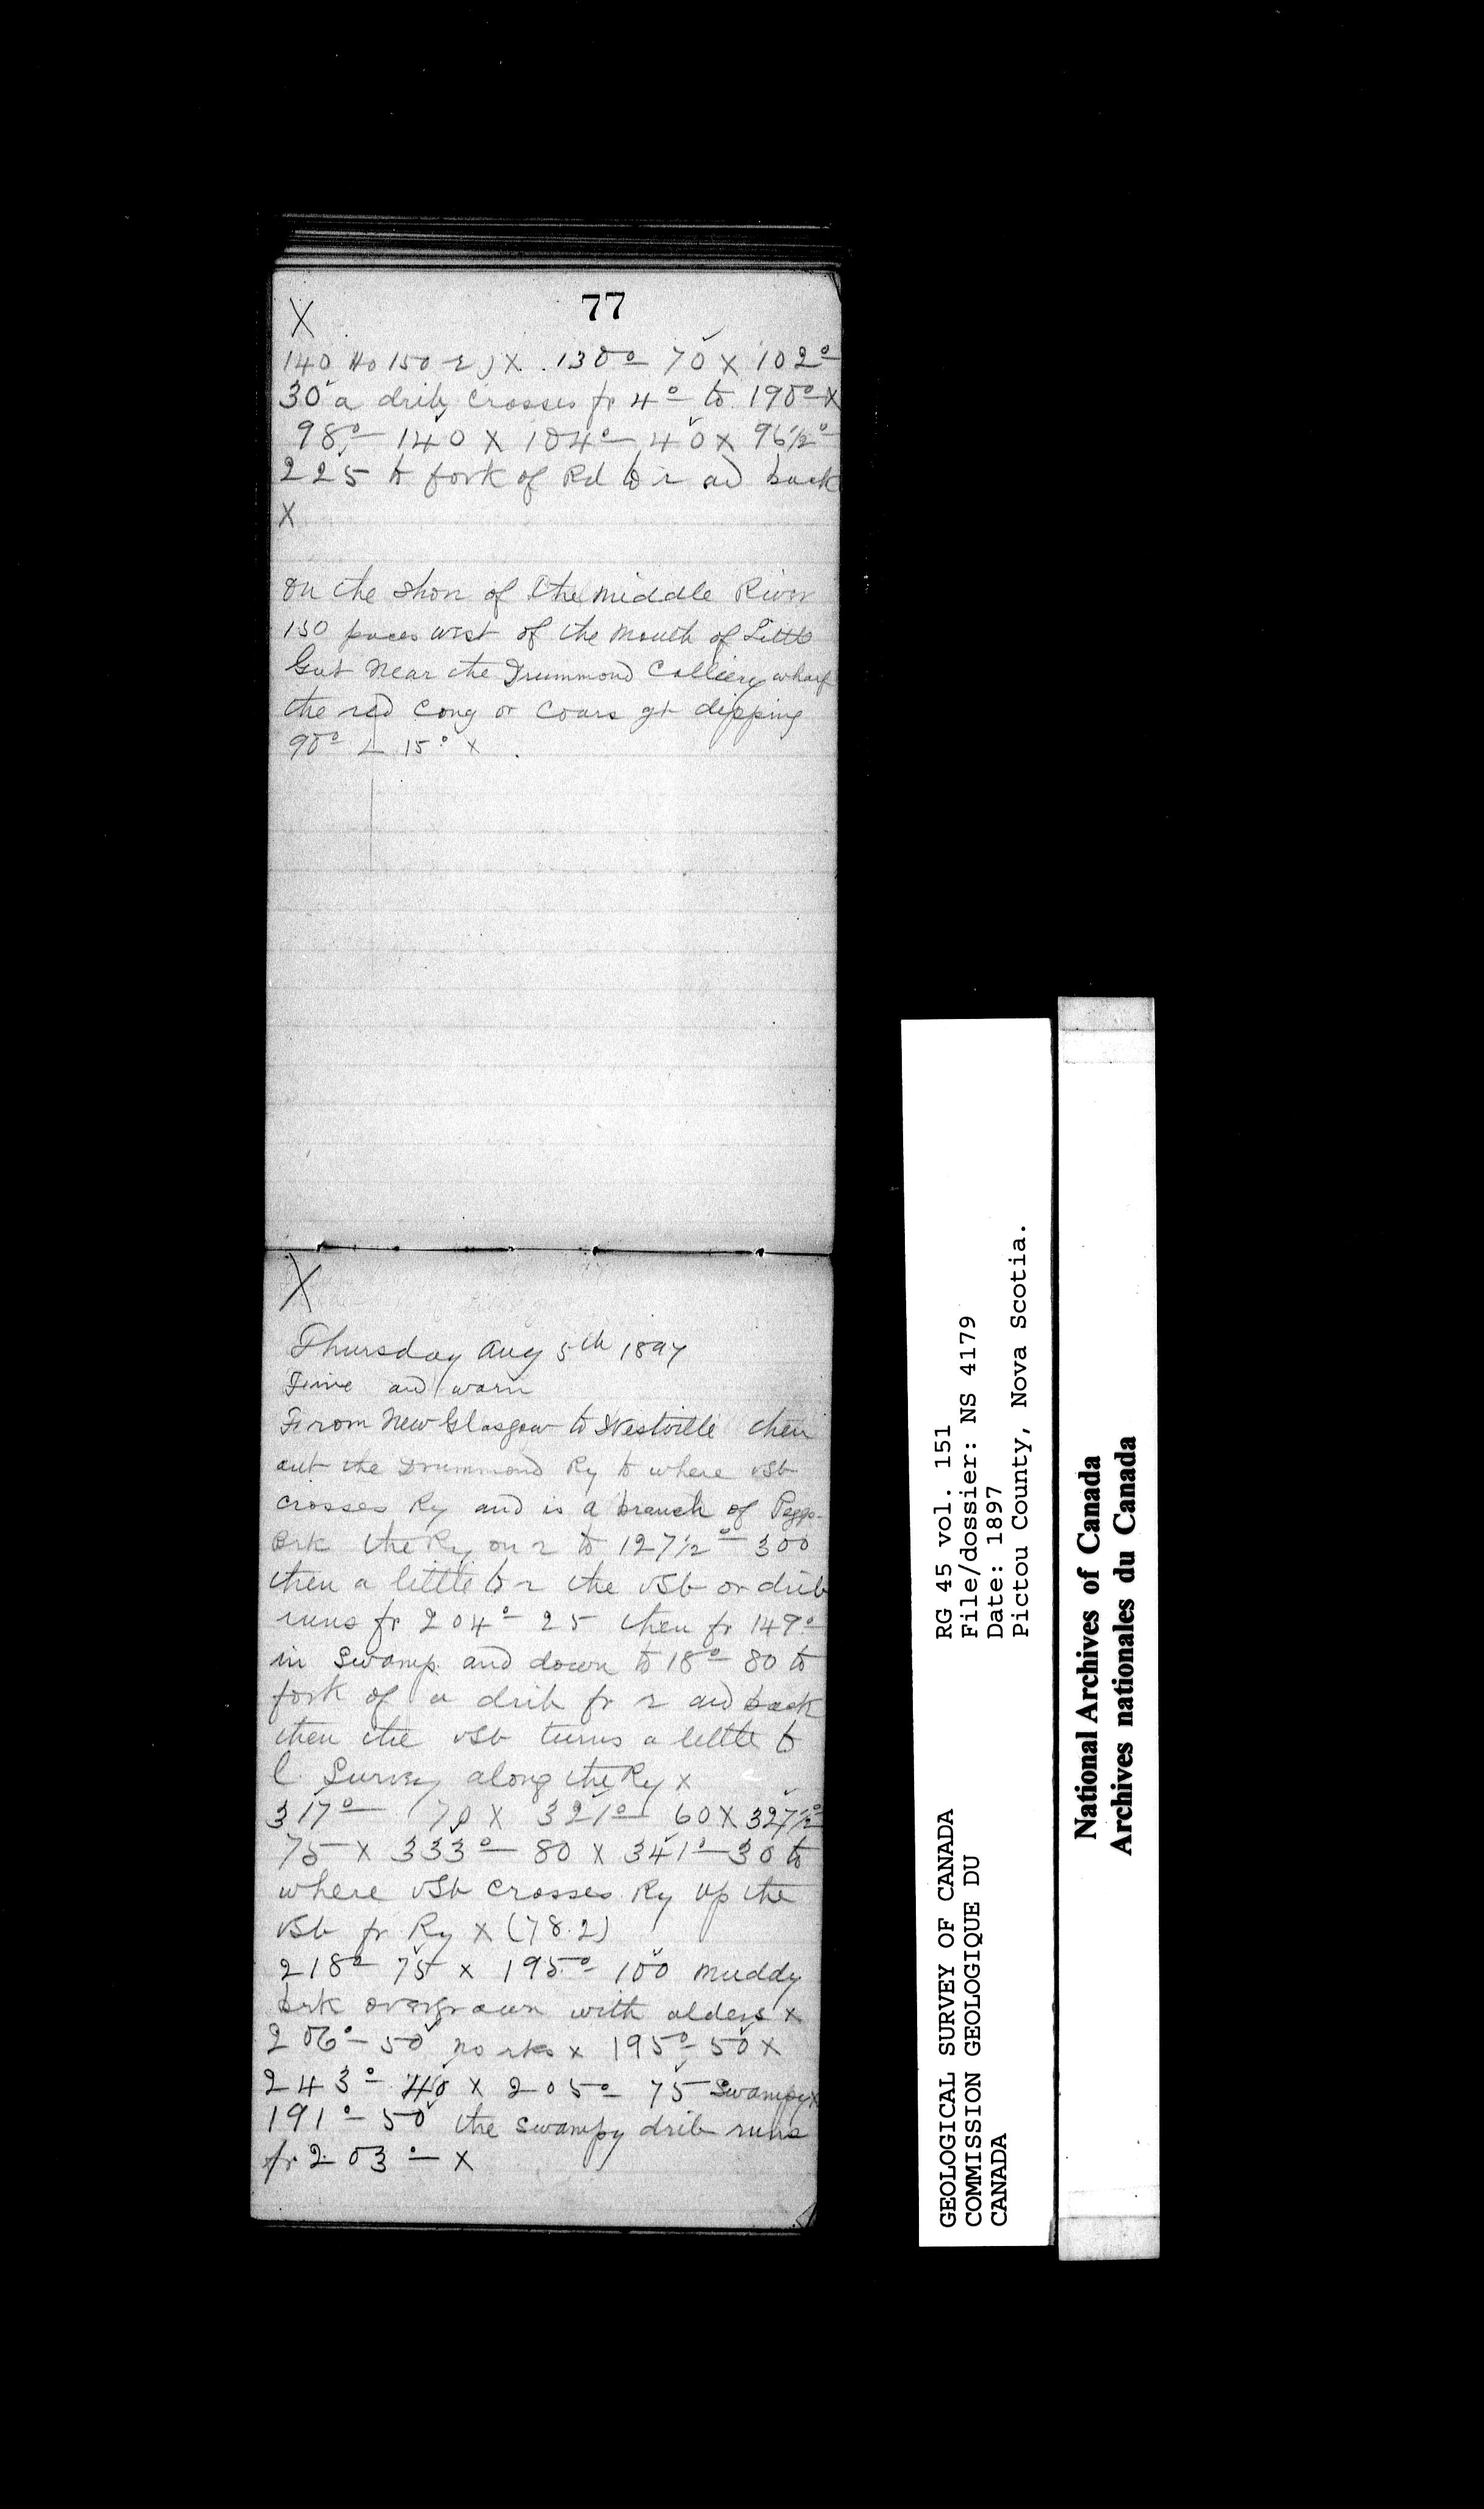 77
X
140 Ho 150 r) X 130° 70 X 102°
30 a drib crosses fr 4° to 190° X
98° 140 X 104° 40 X 96 1/2°
225 to fork of Rd to r and back
X
On the shore of the Middle River
150 paces west of the mouth of Little
Gut near the Drummond Colliery wharf
the red Cong or Coars gt dipping
90° L 15° X
X
Thursday Aug 5th 1897
Fine and warm
From New Glasgow to Westville then
out the Drummond Ry to where vSb
crosses Ry and is a branch of
Brk the Ry on r to 127 1/2° 300
then a little to r the vSb or drib
runs fr 204° 25 then fr 149°
in Swamp and down to 18° 80 to
fork of a drib fr r and back
then the vSb turns a little to
l Survey along the Ry X
317° 70 X 321° 60 X 327 1/2°
75 X 333° 80 X 341° 30 to
where vSb crosses Ry up the
vSb fr Ry X (78.2)
218° 75 X 195° 100 muddy
brk overgrown with alders X
206° 50 no rks X 195° 50 X
243° 40 X 205° 75 Swampy X
191° 50 the swampy drib runs
fr 203° X
GEOLOGICAL SURVEY OF CANADA
COMMISSION GEOLOGIQUE DU
CANADA
RG 45 vol. 151
File/dossier: NS 4179
Date: 1897
Pictou County, Nova Scotia.
National Archives of Canada
Archives nationales du Canada